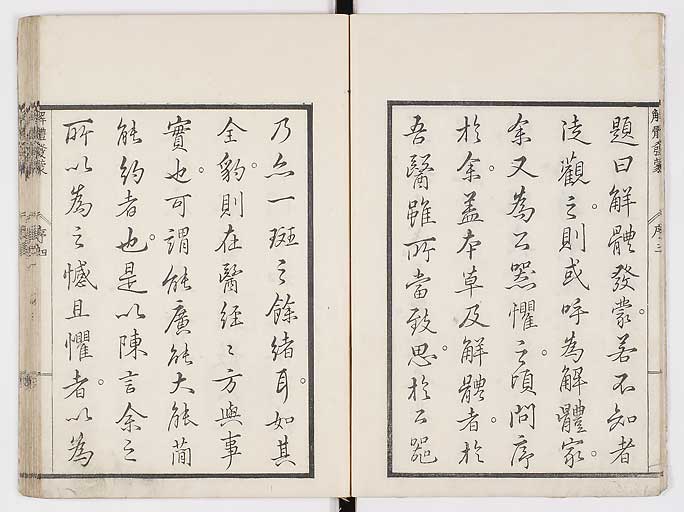 題曰解體發蒙。若不知者
徒觀之。則或呼為解體家。
余又為公器懼之。頃問序
於余。蓋本草及解體者。於
吾醫雖所當致思。於公器
乃亦一斑之餘緒耳。如其
全豹。則在醫經〻方與事
實也。可謂能廣能大能簡
能約者也。是以陳言余之
所以為之憾且懼者。以為
解體發蒙
序三
解體發蒙